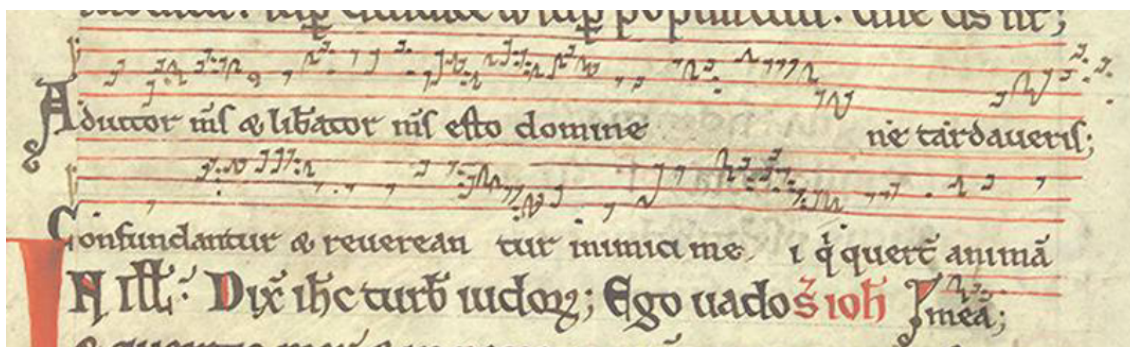 Adiutor m̄s & lib̄ator m̄s esto domine ne tardaueris;
Confundantur & reuerean tur inimici me i q̇ querēt animā
IN ILL̄: Dix̄ ih̄c turb̄ iudoꝝ; Ego uado s̄ ioh̄ mea;